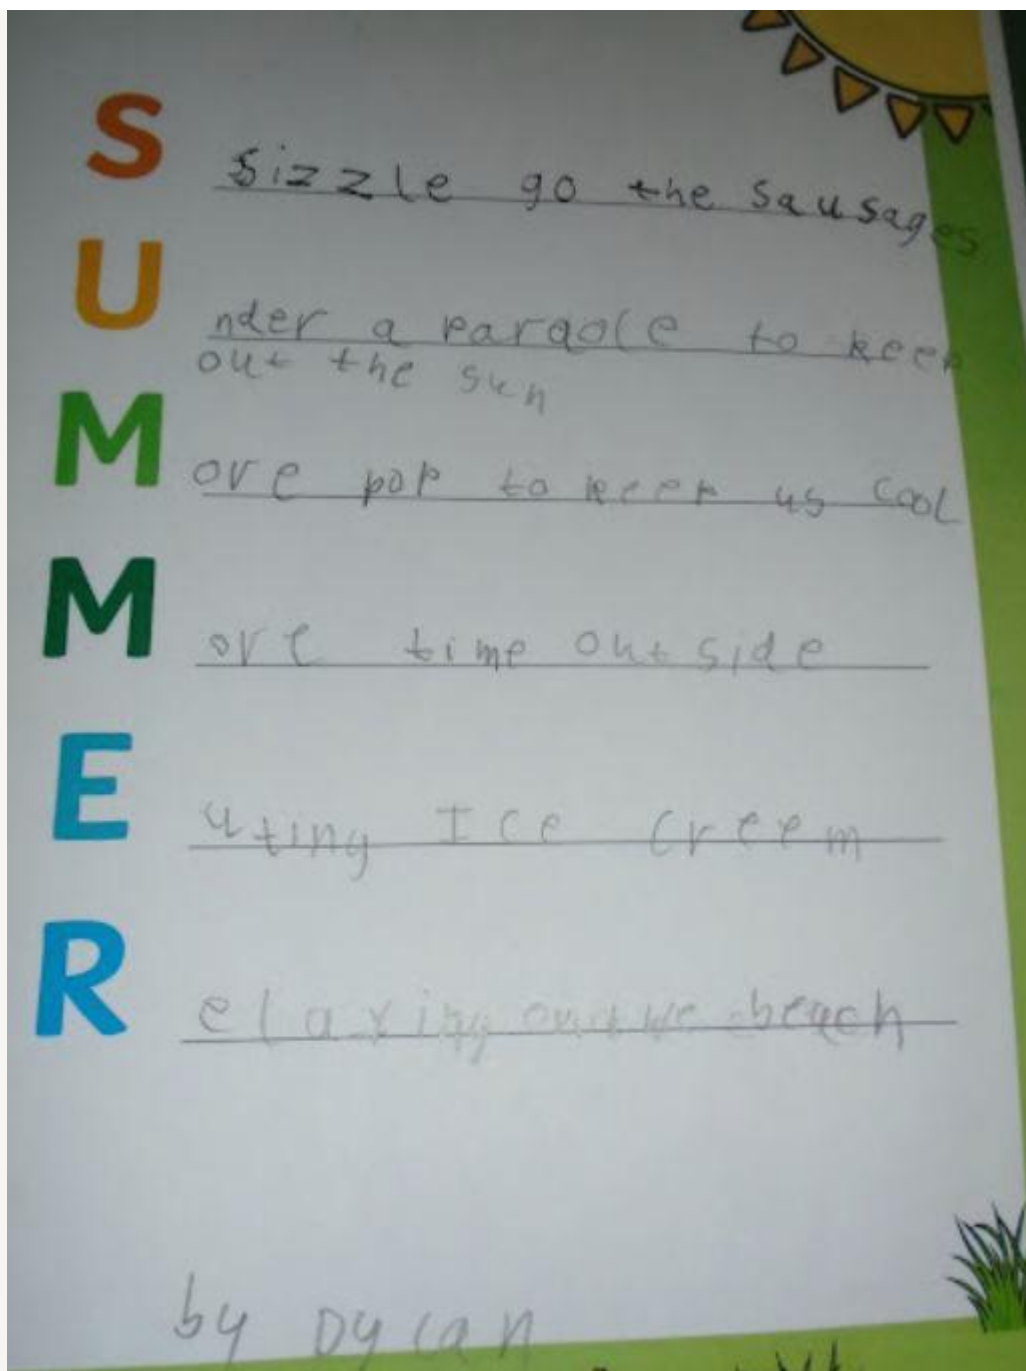 S sizzle go the sausages
U nder a parasole to keep
out the sun
M ore pop to keep us cool
M ore time outside
E uting Ice creem
R elaxing beach
by Dylan